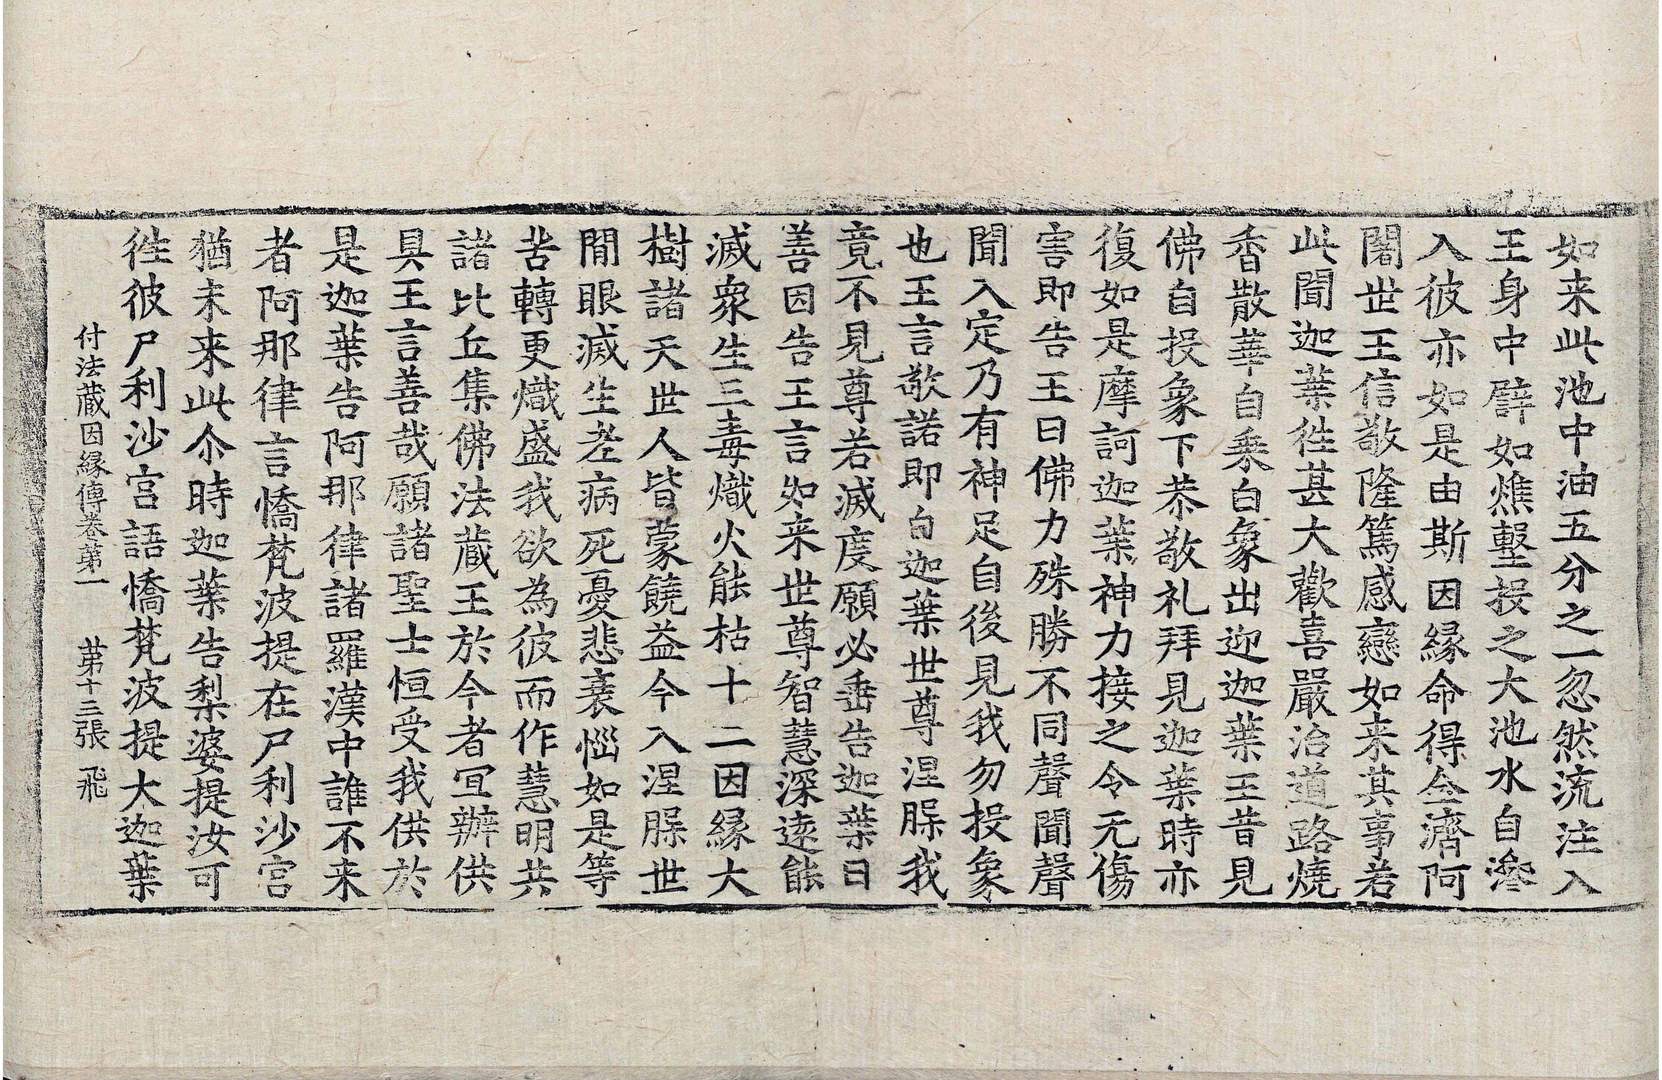 如来此池中油五分之一忽然流注入
王身中譬如燋墼投之大池水自滲
入彼亦如是由斯因縁命得全濟阿
闍世王信敬隆篤感戀如来其事若
此聞迦葉徃甚大歡喜嚴治道路燒
香散華自乗白象出迎迦葉王昔見
佛自投象下恭敬礼拜見迦葉時亦
復如是摩訶迦葉神力接之令无傷
害即告王曰佛力殊勝不同聲聞聲
聞入定乃有神足自後見我勿投象
也王言敬諾即白迦葉世尊涅脲我
竟不見尊若滅度願必垂告迦葉曰
善因告王言如来世尊智慧深逺能
滅衆生三毒熾火能枯十二因縁大
樹諸天世人皆蒙饒益今入涅脲世
間眼滅生老病死憂悲衰惱如是等
苦轉更熾盛我欲為彼而作慧明共
諸比丘集佛法蔵王於今者冝辦供
具王言善哉願諸聖士恒受我供於
是迦葉告阿那律諸羅漢中誰不来
者阿那律言憍梵波提在尸利沙宮
猶未来此尒時迦葉告梨婆提汝可
徃彼尸利沙宮語憍梵波提大迦葉
付法蔵因縁傳卷苐一 苐十三張 飛